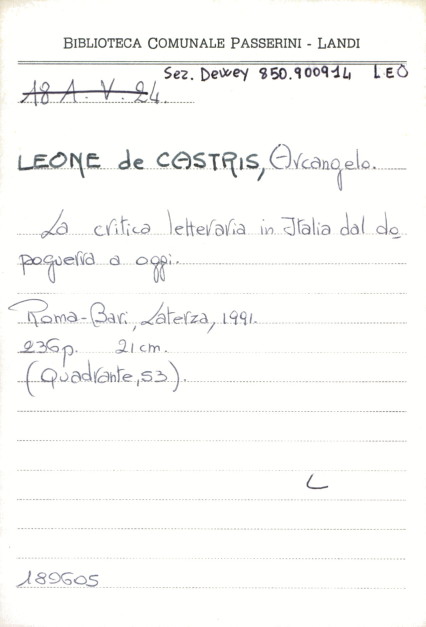 BIBLIOTECA COMUNALE PASSERINI - LANDI
Sez. Dewey 850.900914 LEO
18 A. V. 24.
LEONE de CASTRIS, Arcangelo.
La critica letteraria in Italia dal do
poguerra a oggi.
Roma-Bari, Laterza, 1991.
236p. 21cm.
(Quadrante, 53).
L
189605